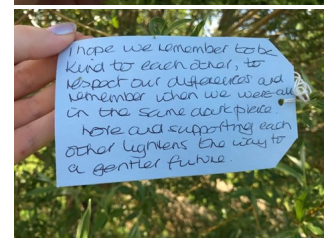 I hope we remember to be
kind to each other, to
respect our differences and
remember when we were all
in the same dark place.
Love and supporting each
other lightens the way to
a gentler future.